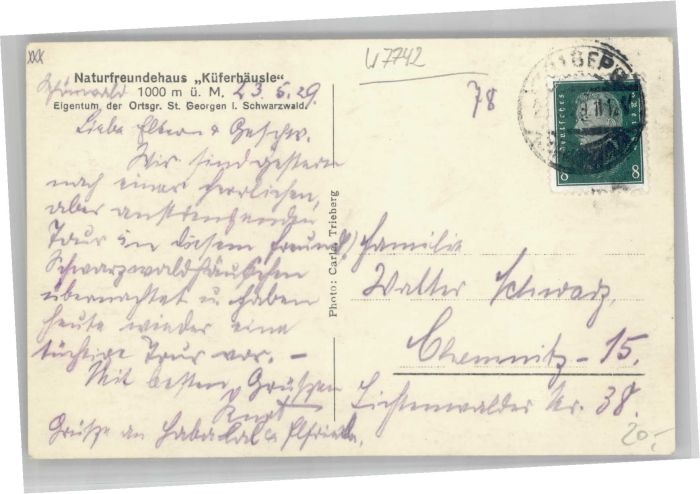 W7742
xxx
Naturfreundehaus „Küferhäusle“
Schönwald 1000 m ü. M. 23.5.29.
Eigentum der Ortsgr. St. Georgen i. Schwarzwald
Liebe Eltern & Geschw.
Wir sind gestern
nach einer herrlichen,
aber anstrengenden
Tour in diesem freundl.
Schwarzwaldhäuschen
übernachtet u. haben
heute wieder eine
tüchtige Tour vor. –
Mit besten Grüßen
Kurt
Grüße an
Photo: Carle, Triberg
78
Deutsches Reich
8 8
Familie
Walter Schwarz,
Chemnitz - 15.
Lichtenwalder Str. 38.
20,-